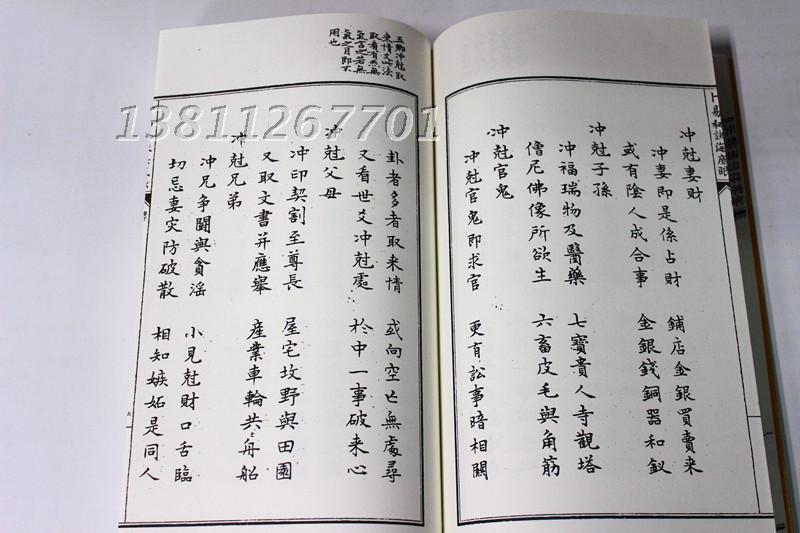 卜易秘訣海底眼
冲尅妻財
冲妻即是係占財 鋪店金銀買賣来
或有陰人成合事 金銀錢銅器和釵
冲尅子孫
冲福瑞物及醫藥 七寶貴人寺觀塔
僧尼佛像所欲生 六畜皮毛與角筋
冲尅官鬼
冲尅官鬼即求官 更有訟事暗相關
五鄉冲尅取
来情爻法
取看有炁無
氣言之若無
氣之月即不
用也
卦者多者取来情 或向空亡無處尋
又看世爻冲尅處 於中一事破来心
冲尅父母
冲印契割至尊長 屋宅坟野與田園
又取文書并應舉 産業車輪共舟船
冲尅兄弟
冲兄争鬪與貪滛 小見尅財口舌臨
切忌妻灾防破散 相知嫉妬是同人
13811267701